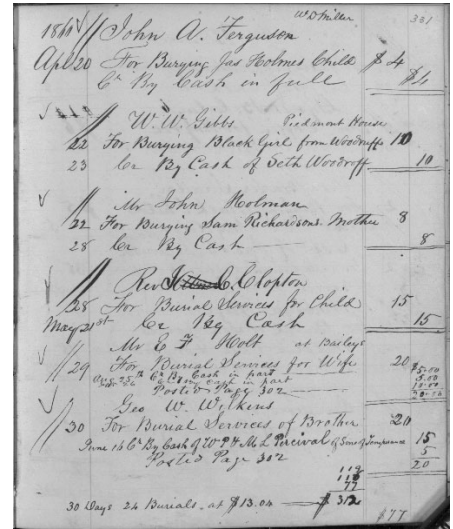 W D Miller 331
1860 // John A. Ferguson
Apl 20 For Burying Jas Holmes Child $4
Cr By Cash in full $4
W. W. Gibbs Piedmont House
22 For Burying Black Girl from Woodruffs 10
23 Cr By Cash of Seth Woodroff 10
Mr John Holman
22 For Burying Sam Richardsons Mother 8
28 Cr By Cash 8
Rev C. Clopton
28 For Burial Services for Child 15
May 21st Cr By Cash 15
Mr E F Holt at Baileys
29 For Burial Services for Wife 20
Cr By Cash in part $5.00
Cr By Cash in part 5.00
Posted Page 302 10.00
20.00
Geo W. Wilkins
30 For Burial Services of Brother 20
June 14 Cr By Cash of W P H M L Percival of Sons of Temperance 15
Posted Page 302 5
20
119
116
77
30 Days 24 Burials at $13.04 $312
$77